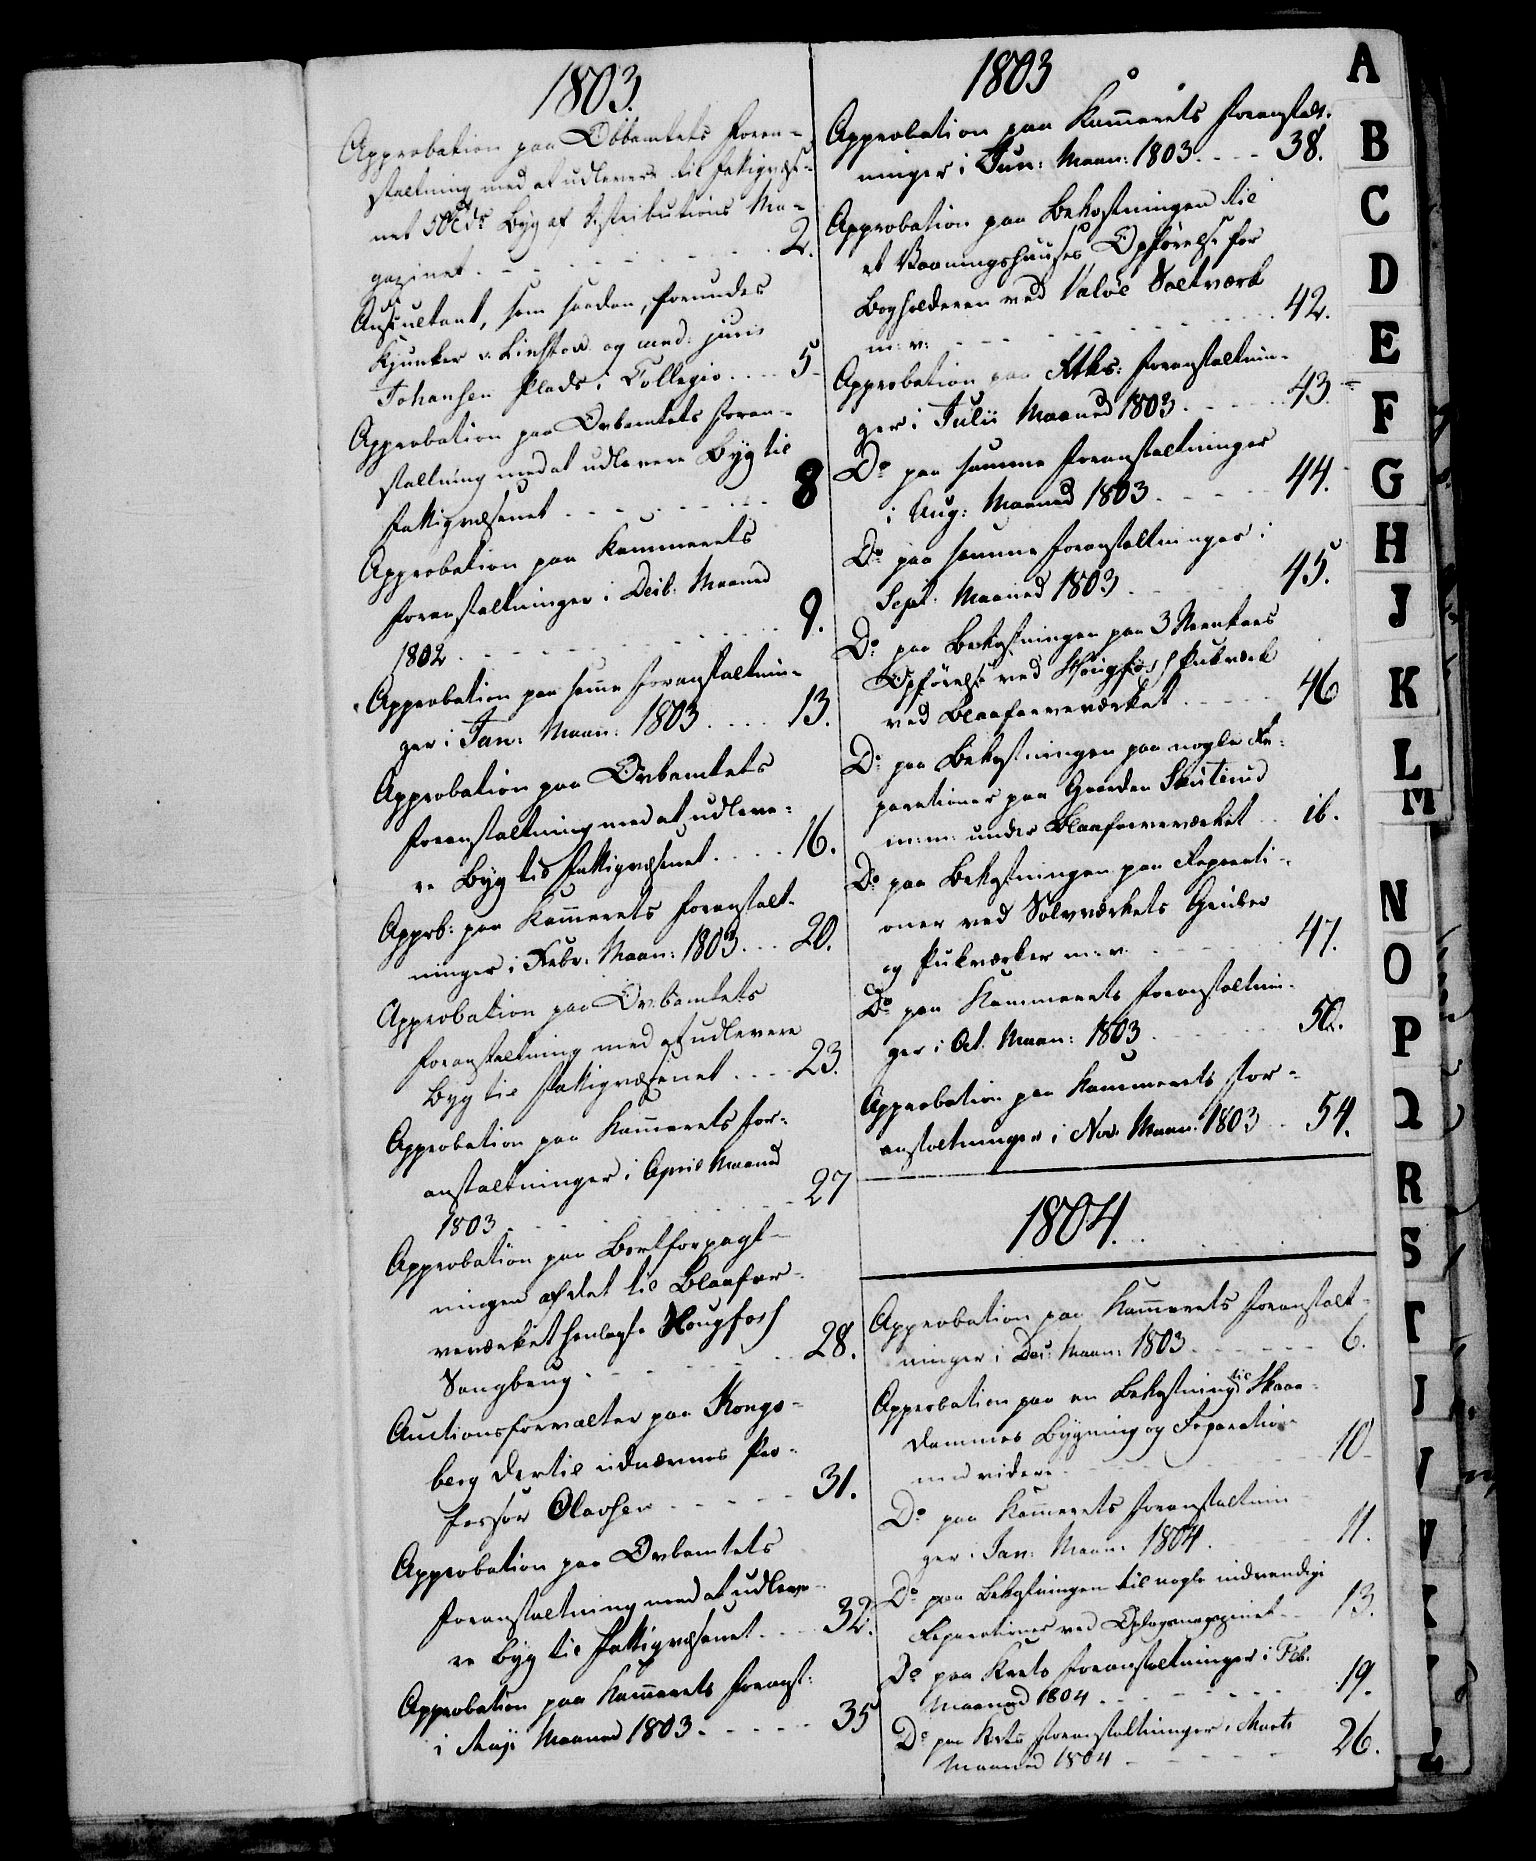 1803.
Approbation paa Obbamtets Foran-
staltning med at udlevere til Fattigvæs-
net 50 Tdr Byg af Distributions Ma-
gazinet. 2.
Auscultant, som saadan, forundes
Kjunker v. Linstow og cand: juris
Johansen Plads i Collegio. 5
Approbation paa Ovbamtets Foran-
staltning med at udlevere Byg til
Fattigvæsenet 8
Approbation paa Kammerets
Foranstaltninger i Decb. Maaned
1802. 9.
Approbation paa samme Foranstaltnin-
ger i Jan: Maan: 1803. 13.
Approbation paa Ovbamtets
Foranstaltning med at udleve-
re Byg til Fattigvæsenet. 16.
Apprb: paa Kammerets Foranstalt-
ninger i Febr. Maan: 1803. 20.
Approbation paa Ovbamtets
Foranstaltning med at udlevere
Byg til Fattigvæsenet. 23.
Approbation paa Kammerets For-
anstaltninger i April Maaned
1803. 27
Approbation paa Bortforpagt-
ningen af det til Blaafar-
veværket henlagte Hougfoss
Saugbrug. 28.
Auctionsforvalter paa Kongs-
berg dertil udnævnes Pro-
fessor Olavsen 31.
Approbation paa Ovbamtets
Foranstaltning med at udleve-
re Byg til Fattigvæsenet. 32.
Approbation paa Kammerets Foranst:
i Maji Maaned 1803. 35
1803
Approbation paa Kammerets Foranstalt-
ninger i Jun: Maan: 1803. 38.
Approbation paa Bekostningen til
et Vaaningshuuses Opförelse for
Bogholderen ved Valöe Saltværk
m: v: 42.
Approbation paa Rtks: Foranstaltnin-
ger i Julii Maaned 1803. 43
Do paa samme Foranstaltninger
i Aug: Maaned 1803. 44.
Do paa samme Foranstaltninger i
Sept. Maaned 1803. 45.
Do paa Bekostningen paa 3
Opförelse ved Hougfoss Pukværk
ved Blaafarveværket. 46
Do paa Bekostningen paa nogle Re-
parationer paa Gaarden Skuterud
m: m: under Blaafarveværket ib.
Do paa Bekostningen paa Reparati-
oner ved Sölvværkets Gruber
og Pukværker m: v. 47.
Do paa Kammerets Foranstaltnin-
ger i Oct. Maan: 1803 50.
Approbation paa Kammerets For-
anstaltninger i Nov. Maan: 1803 54.
1804.
Approbation paa Kammerets Foranstalt-
ninger i Dec: Maan: 1803 6.
Approbation paa en Bekostning til
Dammes Bygning og Reparation
med videre 10
Do paa Kammerets Foranstaltnin-
ger i Jan: Maan: 1804. 11.
Do paa Bekostningen til nogle indvendige
Reparationer ved Oplagsmagazinet 13.
Do paa Krets Foranstaltninger i Feb.
Maaned 1804. 19.
Do paa Krts Foranstaltninger i Marts
Maaned 1804 26.
A
B
C
D
E
F
G
H
J
K
L
M
N
O
P
Q
R
S
T